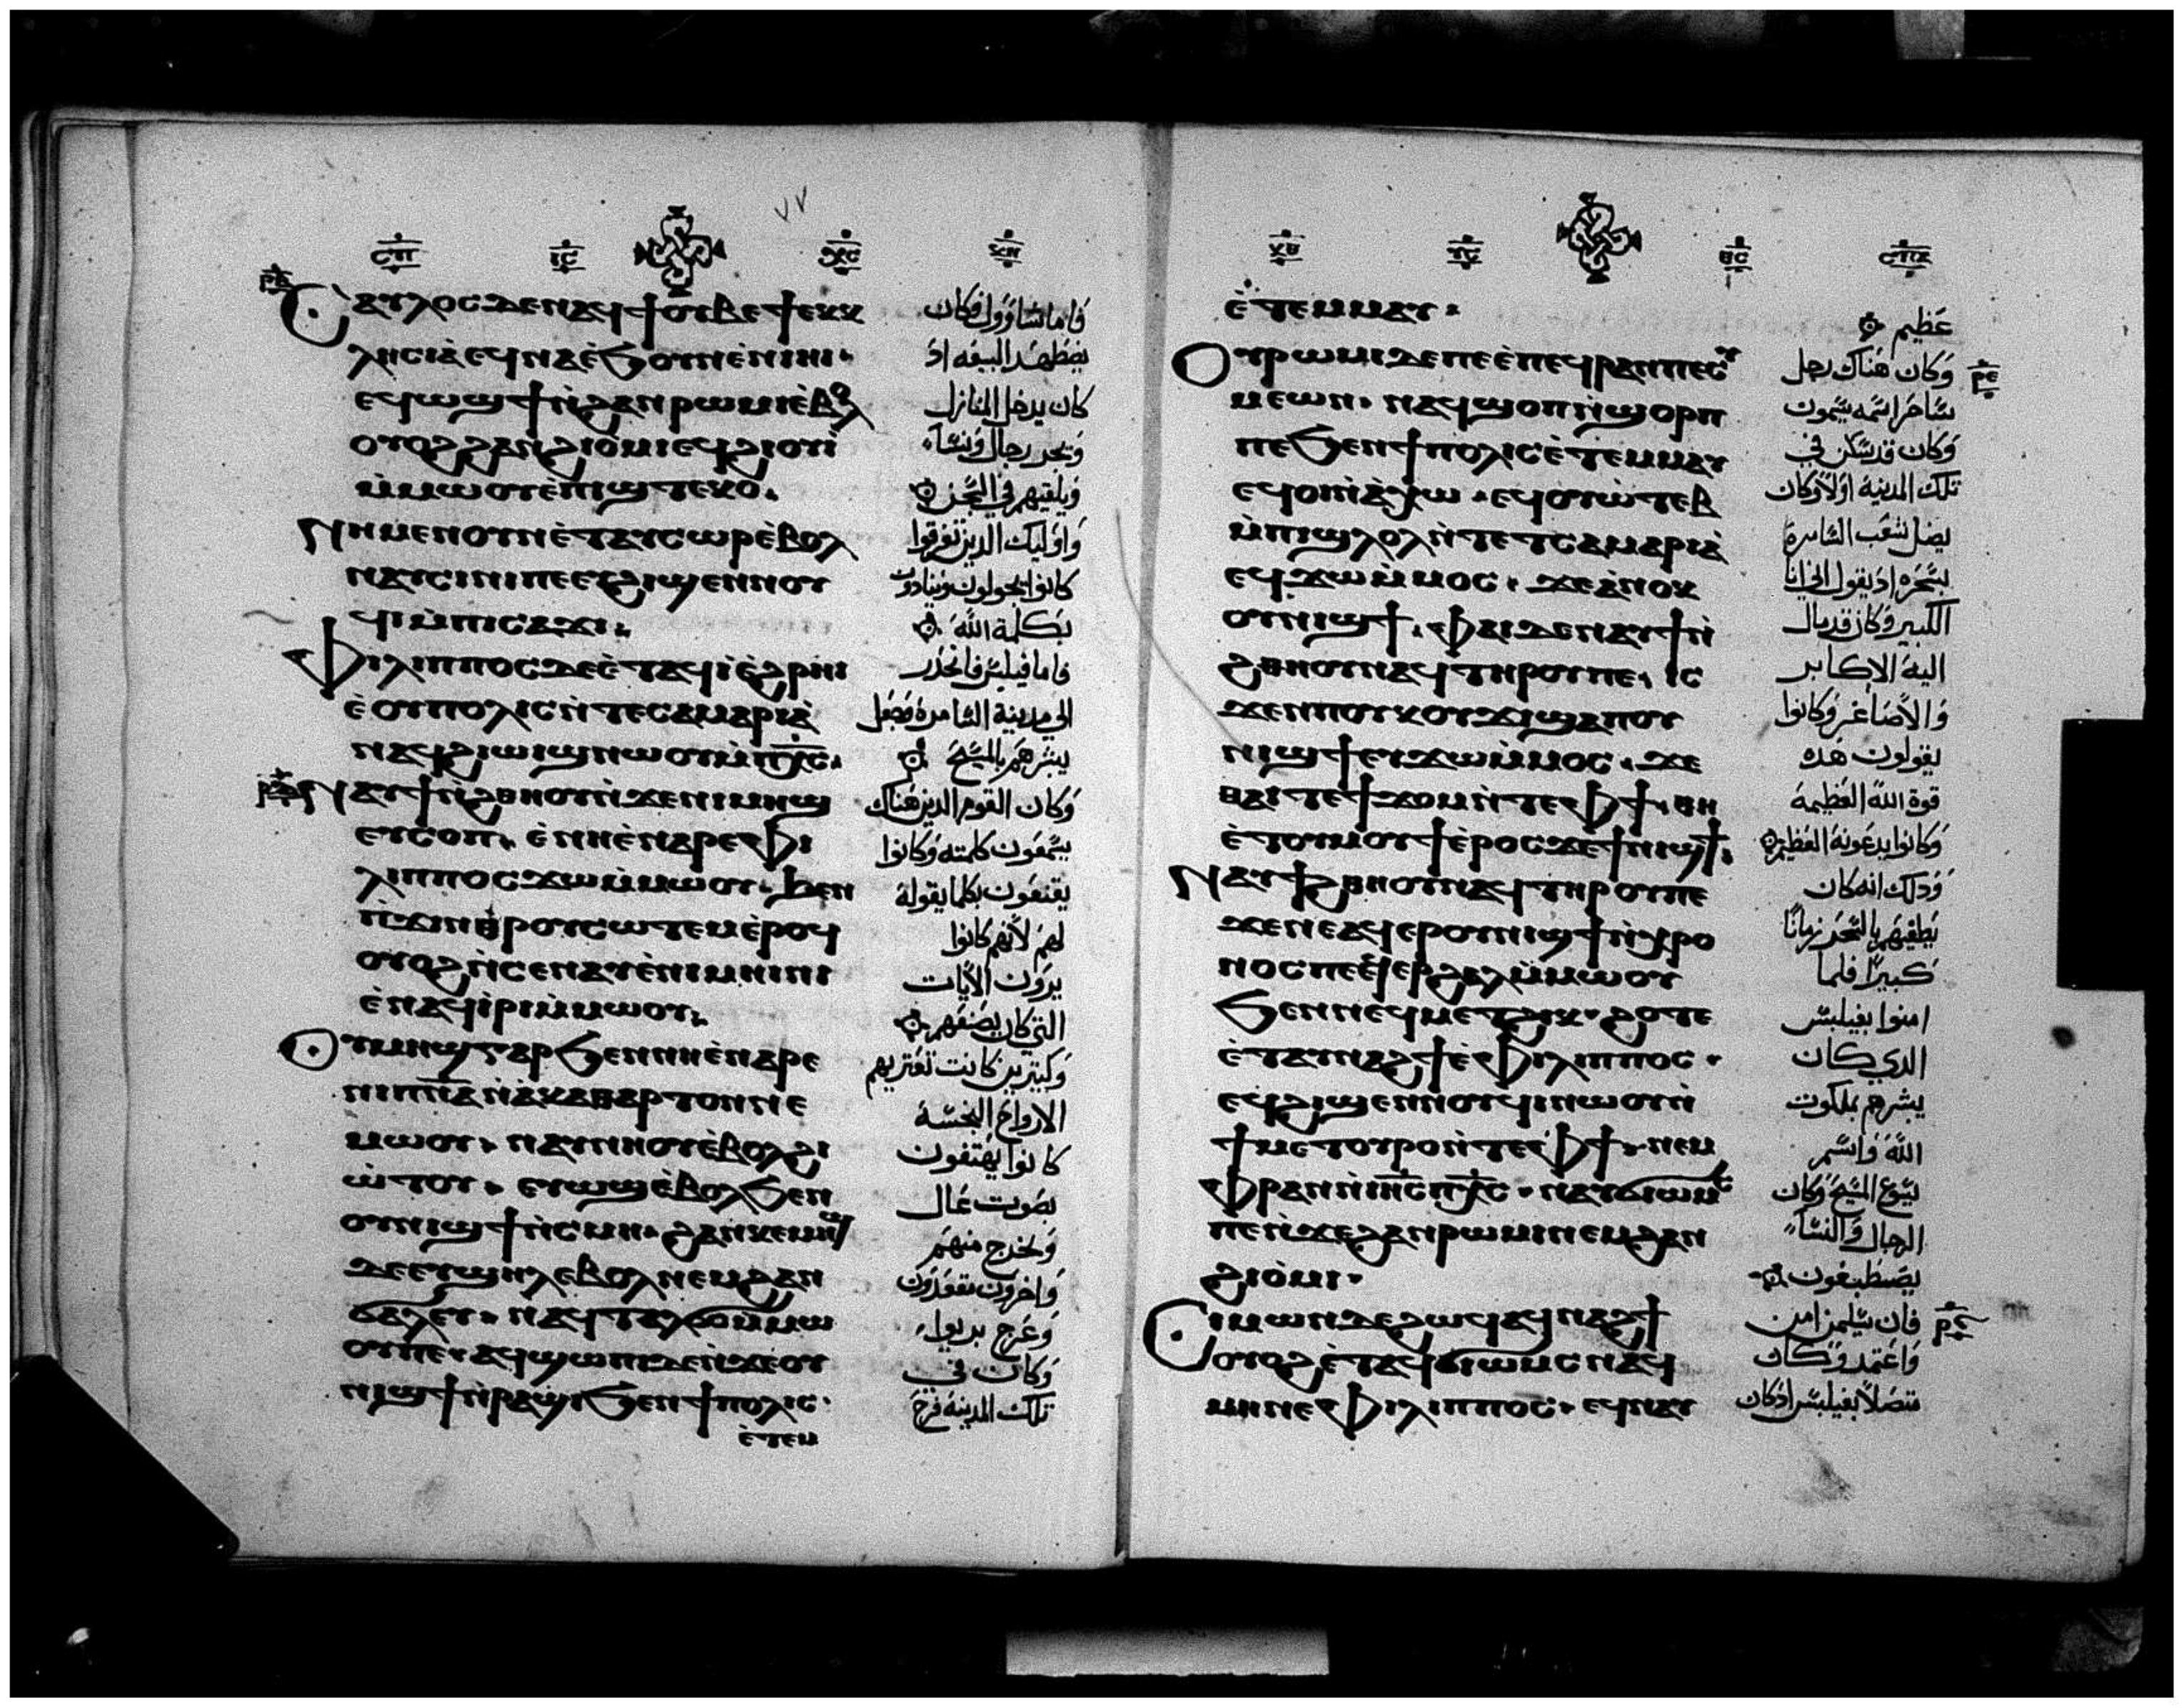 ⲥⲡ ⲓⲥ ⲭⲥ
ⲁⲩⲗⲟⲥ ⲇⲉ ⲛⲁϥϯⲟⲩⲃⲉ ϯⲉⲕⲕ
ⲗⲏⲥⲓⲁ̀ ⲉϥⲛⲁ ⲉ̀ϧⲟⲩⲛ ⲉ̀ⲛⲓⲏⲓ
ⲉϥⲱϣϯ ⲛ̀ϩⲁⲛⲣⲱⲙⲓ ⲉ̀ⲃⲟⲗ
ⲟⲩⲟϩ ϩⲁⲛϩⲓⲟ̀ⲙⲓ ⲉϥϩⲓⲟⲩⲓ̀
ⲙ̀ⲙⲱⲟⲩ ⲉ̀ⲡⲓϣⲧⲉⲕⲟ.
ⲛⲏ ⲙⲉⲛ ⲟⲩⲛ ⲉ̀ⲧⲁⲩⲥⲱⲣ ⲉ̀ⲃⲟⲗ
ⲛⲁⲩⲥⲓⲛⲓ ⲡⲉ ⲉⲩϩⲓϣⲉⲛⲛⲟⲩ
ϥⲓ ⲙ̀ⲡⲓⲥⲁϫⲓ.
ⲫⲓⲗⲓⲡⲡⲟⲥ ⲇⲉ ⲉ̀ⲧⲁϥⲓ̀ ⲉ̀ϩⲣⲏⲓ
ⲉ̀ⲟⲩⲡⲟⲗⲓⲥ ⲛ̀ⲧⲉ ⲥⲁⲙⲁⲣⲓⲁ̀
ⲛⲁϥϩⲓⲱⲓϣ ⲛⲱⲟⲩ ⲙ̀ⲡⲭ̅ⲥ̅.
ⲛⲁⲩϯ ⲛ̀ϩⲑⲏⲟⲩ ⲛ̀ϫⲉ ⲛⲓⲙⲏϣ
ⲉⲩⲥⲟⲡ. ⲉ̀ⲛⲏ ⲉ̀ⲛⲁⲣⲉ ⲫⲓ
ⲗⲓⲡⲡⲟⲥ ϫⲱ ⲙ̀ⲙⲱⲟⲩ. ϧⲉⲛ
ⲡ̀ϫⲓⲛⲑⲣⲟⲩⲥⲱⲧⲉⲙ ⲉ̀ⲣⲟϥ
ⲟⲩⲟϩ ⲛ̀ⲥⲉⲛⲁⲩ ⲉ̀ⲛⲓⲙⲏⲓⲛⲓ
ⲉ̀ⲛⲁϥⲓ̀ⲣⲓ ⲙ̀ⲙⲱⲟⲩ.
ⲟⲩⲙⲏϣ ⲅⲁⲣ ϧⲉⲛ ⲛⲏ ⲉ̀ⲛⲁⲣⲉ
ⲛⲓⲡ̅ⲛ̅ⲁ̅ ⲛ̀ⲁ̀ⲕⲁⲑⲁⲣⲧⲟⲛ ⲛⲉ
ⲙⲱⲟⲩ. ⲛⲁⲩⲛⲏⲟⲩ ⲉ̀ⲃⲟⲗ ϩⲓ
ⲱ̀ⲧⲟⲩ. ⲉⲩⲱϣ ⲉ̀ⲃⲟⲗ ϧⲉⲛ
ⲟⲩⲛⲓϣϯ ⲛ̀ⲥⲙⲏ. ϩⲁⲛⲕⲉⲙⲏϣ
ⲇⲉ ⲉⲩϣⲏⲗ ⲉⲃⲟⲗ ⲛⲉⲙ ϩⲁⲛ
ϭⲁⲗⲉⲩ. ⲛⲁϥⲧⲁⲗϭⲟ ⲙ̀ⲙⲱ
ⲟⲩ ⲡⲉ. ⲁϥϣⲱⲡⲓ ⲇⲉ ⲛ̀ϫⲉ ⲟⲩ
ⲛⲓϣϯ ⲛ̀ⲣⲁϣⲓ ϧⲉⲛ ϯⲡⲟⲗⲓⲥ
ⲉ̀ⲧⲉⲙ
فاما شاوول فكان
يضطهد البيعه اذ
كان يدخل المنازل
ويجر رجال ونساء
ويلقيهم في السجن
واوليك الدين تفرقوا
كانوا يجولون وينادون
بكلمة الله
فاما فيلبس فانحدر
الي مدينة السامرة وجعل
يبشرهم بالمسيح
وكان القوم الدين هناك
يسمعون كلمته وكانوا
يقنعون بكلما يقوله
لهم لانهم كانوا
يرون الايات
التي كان يصنعهم
وكتيرين كانت تعتريهم
الارواح النجسة
كانوا يهتفون
بصوت عال
وتخرج منهم
واخرون مقعدون
وعرج بريوا
وكان في
تلك المدينة فرح
ⲓⲥ ⲑⲥ ⲥⲡⲁ
ⲉ̀ⲧⲉⲙⲙⲁⲩ.
ⲟⲩⲣⲱⲙⲓ ⲇⲉ ⲡⲉ ⲉ̀ⲡⲉϥⲣⲁⲛ ⲡⲉ ⲥⲩ
ⲙⲉⲱⲛ. ⲛⲁϥϣⲟⲡ ⲛ̀ϣⲟⲣⲡ
ⲡⲉ ϧⲉⲛ ϯⲡⲟⲗⲓⲥ ⲉ̀ⲧⲉⲙⲙⲁⲩ
ⲉϥⲟⲓ ⲛ̀ⲁ̀ⲭⲱ. ⲉϥⲟⲩⲱ̀ⲧⲉⲃ
ⲙ̀ⲡⲓϣⲗⲟⲗ ⲛ̀ⲧⲉ ⲧⲥⲁⲙⲁⲣⲓⲁ̀
ⲉϥϫⲱ ⲙ̀ⲙⲟⲥ. ϫⲉ ⲁ̀ⲛⲟⲕ
ⲟⲩⲛⲓϣϯ. ⲫⲁⲓ ⲇⲉ ⲛⲁⲩϯ ⲛ̀
ϩⲑⲏⲟⲩ ⲛⲁϥ ⲧⲏⲣⲟⲩ ⲡⲉ. ⲓⲥ
ϫⲉⲛ ⲡⲟⲩⲕⲟⲩϫⲓ ϣⲁ ⲡⲟⲩ
ⲛⲓϣϯ ⲉⲩϫⲱ ⲙ̀ⲙⲟⲥ. ϫⲉ
ⲑⲁⲓ ⲧⲉ ϯϫⲟⲙ ⲛ̀ⲧⲉ ⲫϯ. ⲑⲏ
ⲉ̀ⲧⲟⲩⲙⲟⲩϯ ⲉ̀ⲣⲟⲥ ϫⲉ ϯⲛⲓϣϯ.
ⲛⲁⲩϯϩⲑⲏⲟⲩ ⲛⲁϥ ⲧⲏⲣⲟⲩ ⲡⲉ
ϫⲉ ⲛⲉ ⲁϥⲉⲣ ⲟⲩⲛⲓϣϯ ⲛ̀ⲭⲣⲟ
ⲛⲟⲥ ⲡⲉ ⲉϥⲉⲣϩⲁⲗ ⲙ̀ⲙⲱⲟⲩ
ϧⲉⲛ ⲛⲉϥⲙⲉⲧϩⲓⲕ. ϩⲟⲧⲉ
ⲉ̀ⲧⲁⲩⲛⲁϩϯ ⲉ̀ⲫⲓⲗⲓⲡⲡⲟⲥ.
ⲉϥϩⲓϣⲉⲛⲛⲟⲩϥⲓ ⲛⲱⲟⲩ ⲛ̀
ϯⲙⲉⲧⲟⲩⲣⲟ ⲛ̀ⲧⲉ ⲫϯ. ⲛⲉⲙ
ⲫⲣⲁⲛ ⲛ̀ⲓⲏ̅ⲥ̅ ⲡⲭ̅ⲥ̅. ⲛⲁⲩϭⲓⲱⲙⲥ
ⲡⲉ ⲛ̀ϫⲉ ϩⲁⲛⲣⲱⲙⲓ ⲛⲉⲙ ϩⲁⲛ
ϩⲓⲟ̀ⲙⲓ.
ⲥⲓⲙⲱⲛ ⲇⲉ ϩⲱϥ ⲁϥⲛⲁϩϯ
ⲟⲩⲟϩ ⲉ̀ⲧⲁϥϭⲓⲱⲙⲥ ⲛⲁϥ
ⲙⲏⲛ ⲉ ⲫⲓⲗⲓⲡⲡⲟⲥ. ⲉϥⲛⲁⲩ
عظيم
وكان هناك رجل
ساحر اسمه سيمون
وكان قد سكن في
تلك المدينة اولا وكان
يضل شعب السامرة
بسحره اذ يقول اني انا
الكبير وكان قد مال
اليه الاكابر
والاصاغر وكانوا
يقولون هده
قوة الله العظيمة
وكانوا يدعونه العظيم
ودلك انه كان
يطغيهم بالسحر زمانا
كبيرا فلما
امنوا بفيلبس
الدي كان
يبشرهم بملكوت
الله واسم
يسوع المسيح وكان
الرجال والنساء
يصطبغون
فان سيمن امن
واعتمد وكان
متصلا بفيلبس اذ كان